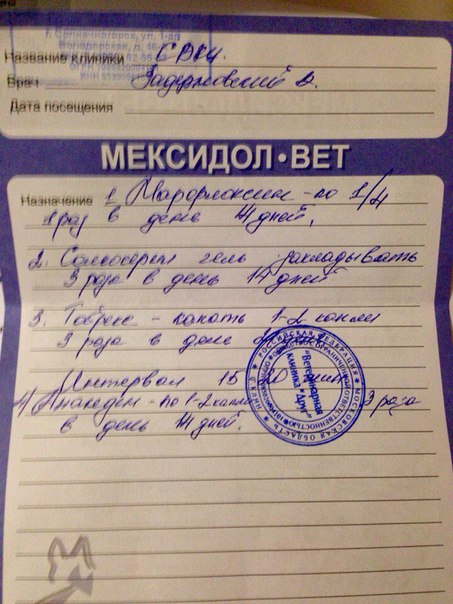 г. Солнечногорск, ул. 1-ая
Володарская, д.
Название клиники СВКЦ
Врач Задерновский В.
Дата посещения
МЕКСИДОЛ•ВЕТ
Назначение 1. Марфлоксин - по 1/4
1 раз в день 14 дней.
2. Солкосерил гель закладывать
3 раза в день 14 дней
3. Тобрекс - капать 1-2 капли
3 раза в день
Интервал 15
4) Анандин - по 1-2 капли 3 раза
в день 14 дней.
РОССИЙСКАЯ ФЕДЕРАЦИЯ
МОСКОВСКАЯ ОБЛАСТЬ
"Ветеринарная
клиника "Друг"